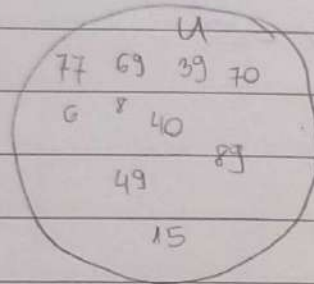 U
77 69 39 70
6 8 40
89
49
15